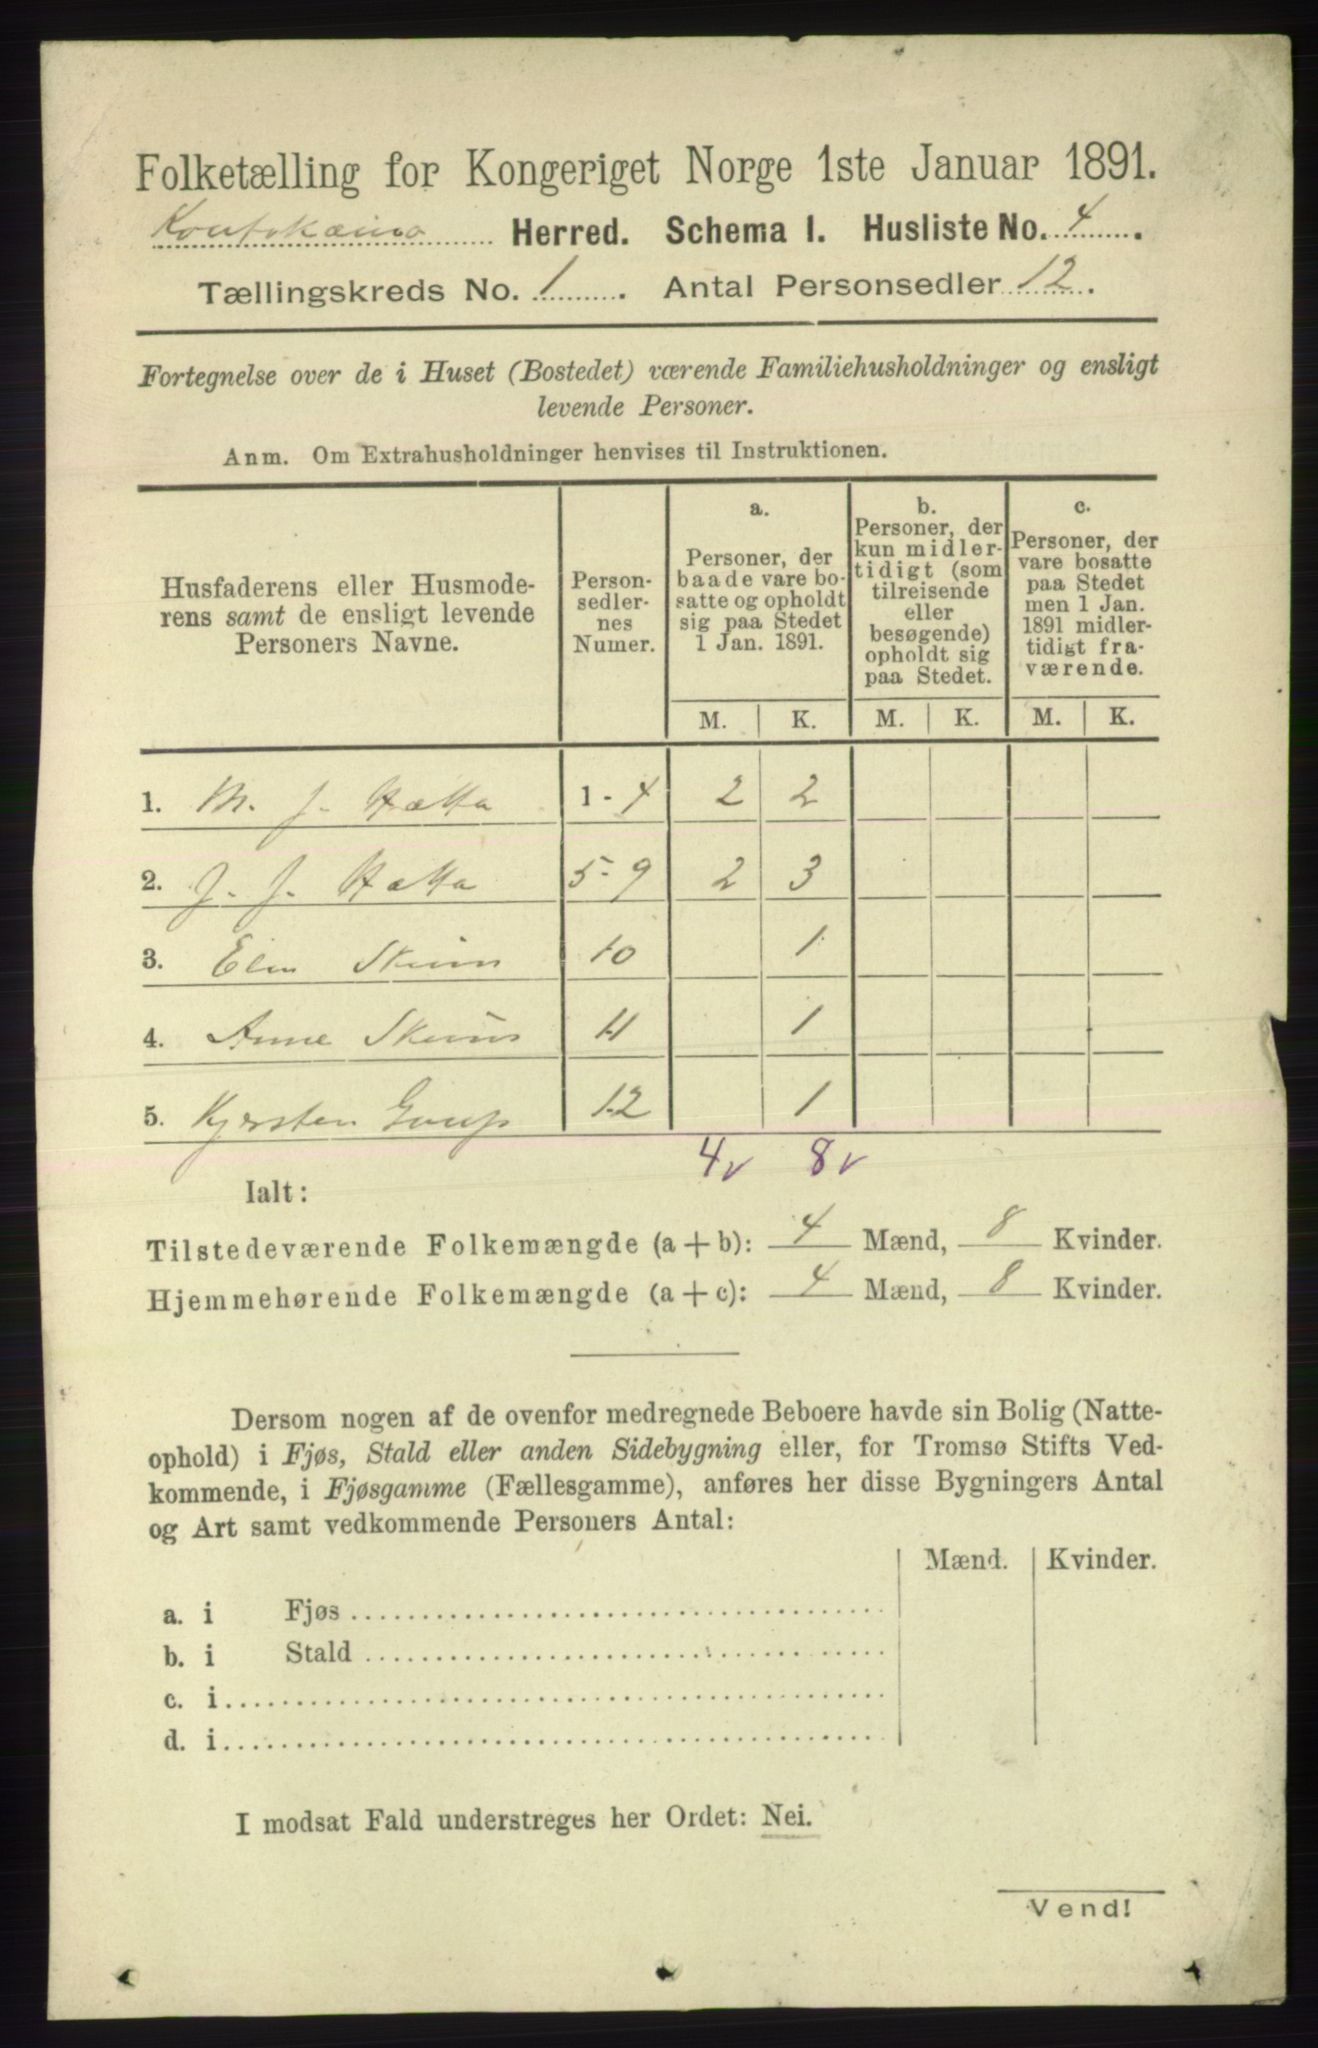 Folketælling for Kongeriget Norge 1ste Januar 1891.
Koutokæino Herred. Schema I. Husliste No. 4.
Tællingskreds No. 1. Antal Personsedler 12.
Fortegnelse over de i Huset (Bostedet) værende Familiehusholdninger og ensligt
levende Personer.
Anm. Om Extrahusholdninger henvises til Instruktionen.
Husfaderens eller Husmode-
rens samt de ensligt levende
Personers Navne.
Person-
sedler-
nes
Numer.
a.
Personer, der
baade vare bo-
satte og opholdt
sig paa Stedet
1 Jan. 1891.
b.
Personer, der
kun midler-
tidigt (som
tilreisende
eller
besøgende)
opholdt sig
paa Stedet.
c.
Personer, der
vare bosatte
paa Stedet
men 1 Jan.
1891 midler-
tidigt fra-
værende.
M. K. M. K. M. K.
1. M. J. Hætta 1-4 2 2
2. J. J. Hætta 5-9 2 3
3. Elen 10 1
4. Anne 11 1
5. Kjersten Gaup 12 1
4v 8v
Ialt:
Tilstedeværende Folkemængde (a + b): 4 Mænd, 8 Kvinder.
Hjemmehørende Folkemængde (a + c): 4 Mænd, 8 Kvinder.
Dersom nogen af de ovenfor medregnede Beboere havde sin Bolig (Natte-
ophold) i Fjøs, Stald eller anden Sidebygning eller, for Tromsø Stifts Ved-
kommende, i Fjøsgamme (Fællesgamme), anføres her disse Bygningers Antal
og Art samt vedkommende Personers Antal:
Mænd. Kvinder.
a. i Fjøs
b. i Stald
c. i
d. i
I modsat Fald understreges her Ordet: Nei.
Vend!